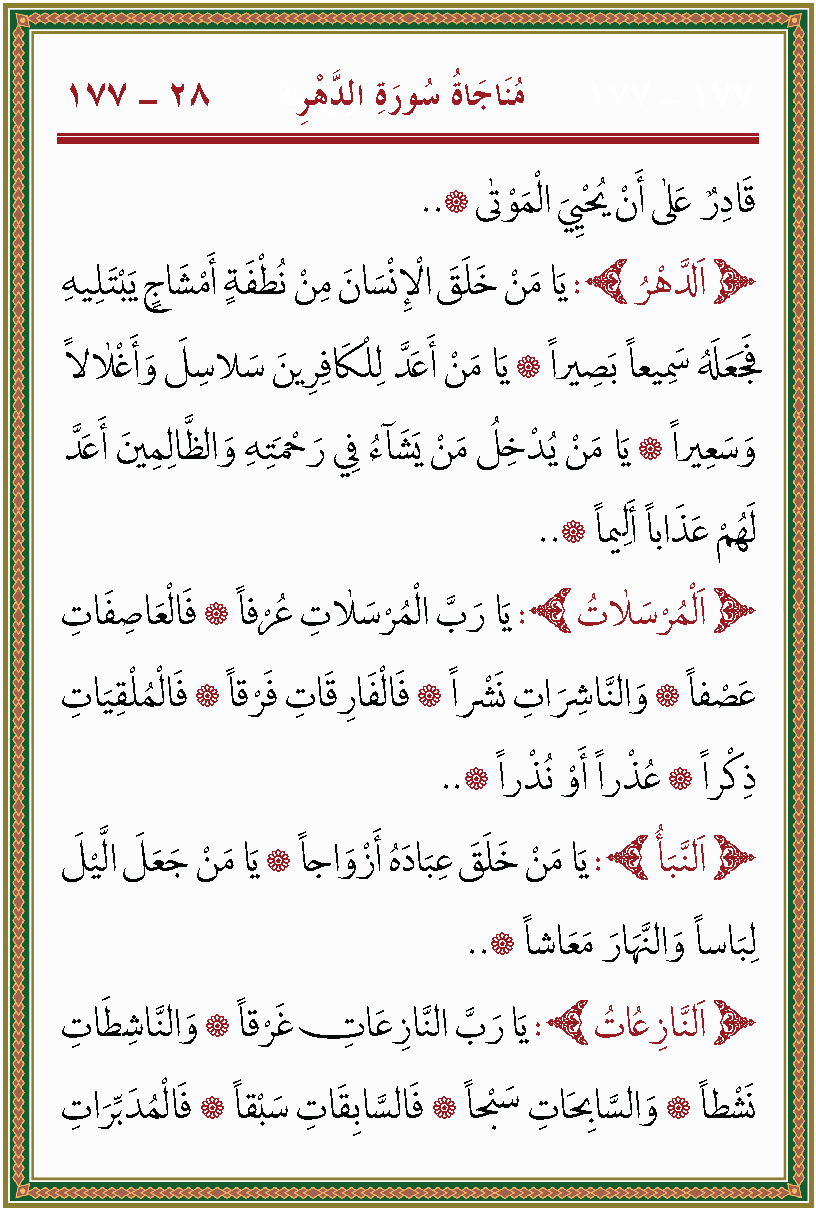 مُنَاجَاةُ سُورَةِ الدَّهْرِ ٢٨ – ١٧٧
قَادِرٌ عَلٰى أَنْ يُحْيِيَ الْمَوْتٰى ۞..
﴿ اَلدَّهْرُ ﴾: يَا مَنْ خَلَقَ الْإِنْسَانَ مِنْ نُطْفَةٍ أَمْشَاجٍ يَبْتَلِيهِ
فَجَعَلَهُ سَمِيعاً بَصِيراً ۞ يَا مَنْ أَعَدَّ لِلْكَافِرِينَ سَلاسِلَ وَأَغْلَالاً
وَسَعِيراً ۞ يَا مَنْ يُدْخِلُ مَنْ يَشَآءُ فِي رَحْمَتِهِ وَالظَّالِمِينَ أَعَدَّ
لَهُمْ عَذَاباً أَلِيماً ۞..
﴿ اَلْمُرْسَلَاتُ ﴾: يَا رَبَّ الْمُرْسَلَاتِ عُرْفاً ۞ فَالْعَاصِفَاتِ
عَصْفاً ۞ وَالنَّاشِرَاتِ نَشْراً ۞ فَالْفَارِقَاتِ فَرْقاً ۞ فَالْمُلْقِيَاتِ
ذِكْراً ۞ عُذْراً أَوْ نُذْراً ۞..
﴿ اَلنَّبَأُ ﴾: يَا مَنْ خَلَقَ عِبَادَهُ أَزْوَاجاً ۞ يَا مَنْ جَعَلَ الَّيْلَ
لِبَاساً وَالنَّهَارَ مَعَاشاً ۞..
﴿ اَلنَّازِعَاتُ ﴾: يَا رَبَّ النَّازِعَاتِ غَرْقاً ۞ وَالنَّاشِطَاتِ
نَشْطاً ۞ وَالسَّابِحَاتِ سَبْحاً ۞ فَالسَّابِقَاتِ سَبْقاً ۞ فَالْمُدَبِّرَاتِ